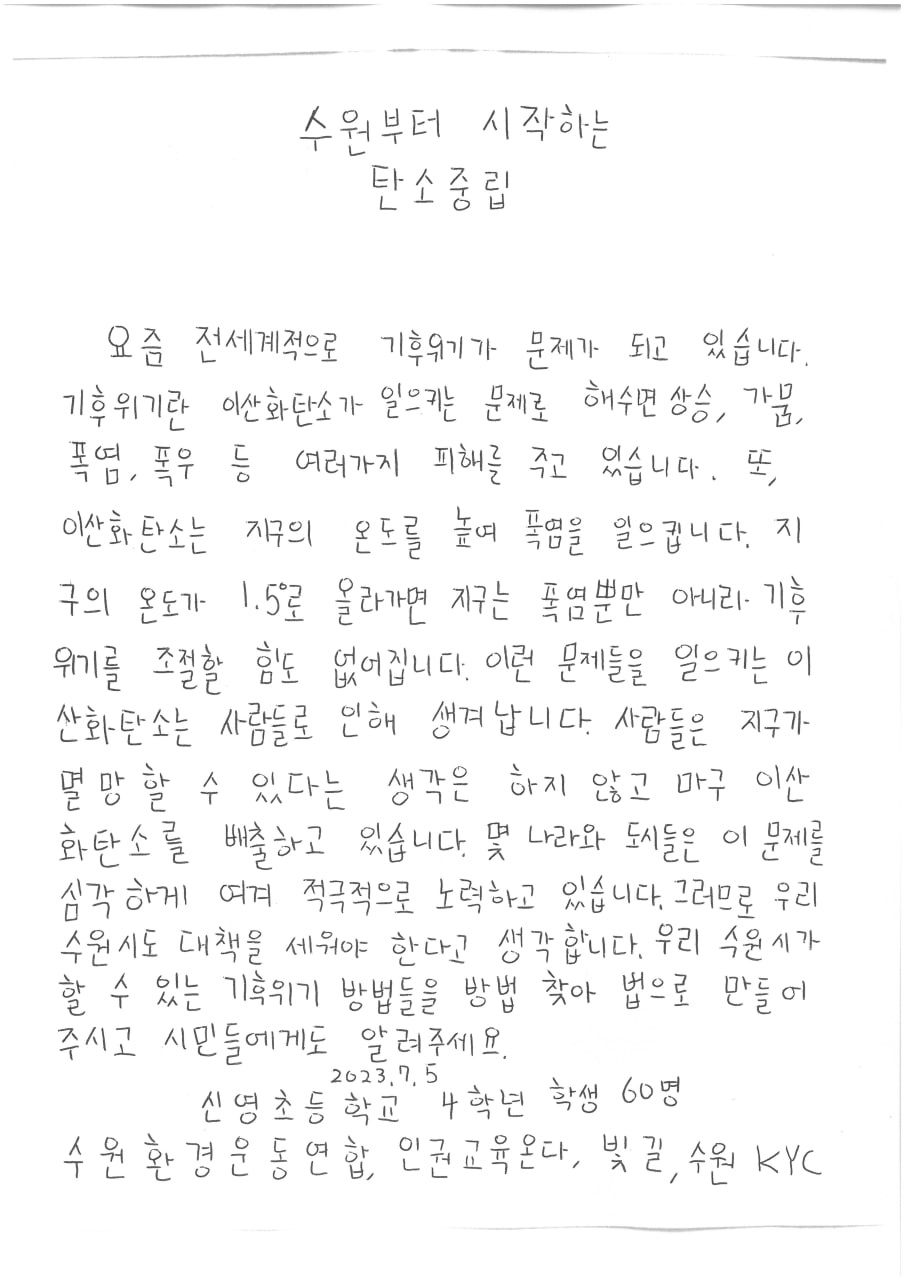 수원부터 시작하는
탄소중립
요즘 전세계적으로 기후위기가 문제가 되고 있습니다.
기후위기란 이산화탄소가 일으키는 문제로 해수면 상승, 가뭄,
폭염, 폭우 등 여러가지 피해를 주고 있습니다. 또,
이산화탄소는 지구의 온도를 높여 폭염을 일으킵니다. 지
구의 온도가 1.5°로 올라가면 지구는 폭염뿐만 아니라 기후
위기를 조절할 힘도 없어집니다. 이런 문제들을 일으키는 이
산화탄소는 사람들로 인해 생겨납니다. 사람들은 지구가
멸망할 수 있다는 생각은 하지 않고 마구 이산
화탄소를 배출하고 있습니다. 몇 나라와 도시들은 이 문제를
심각하게 여겨 적극적으로 노력하고 있습니다. 그러므로 우리
수원시도 대책을 세워야 한다고 생각합니다. 우리 수원시가
할 수 있는 기후위기 방법들을 방법 찾아 법으로 만들어
주시고 시민들에게도 알려주세요.
2023.7.5
신영초등학교 4학년 학생 60명
수원환경운동연합, 인권교육온다, 빛길, 수원 KYC